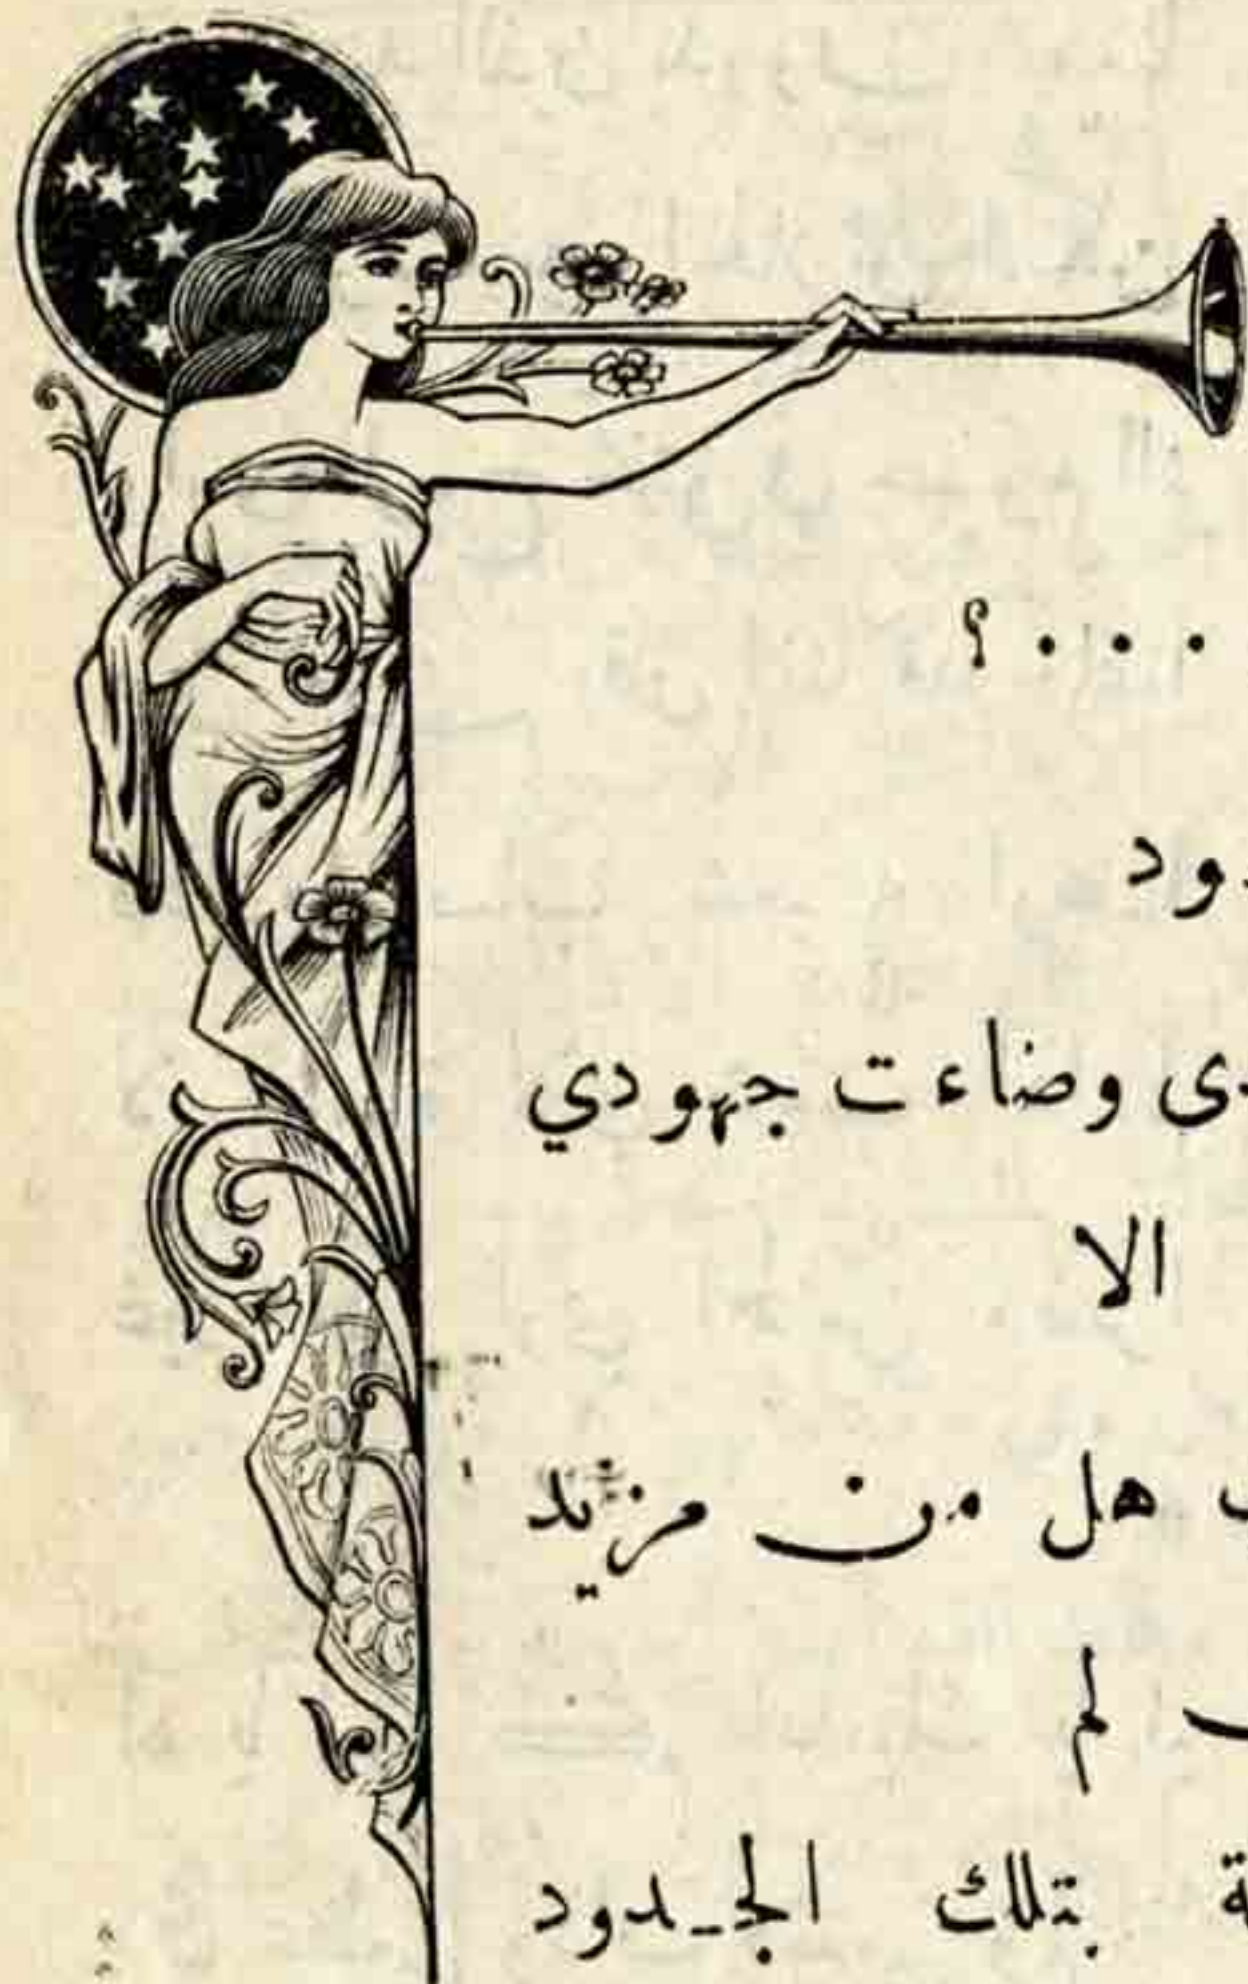 . . . ؟
ود
ى وضاءت جهودي
الا
هل من مزيد
لم
ة بتلك الجـدود